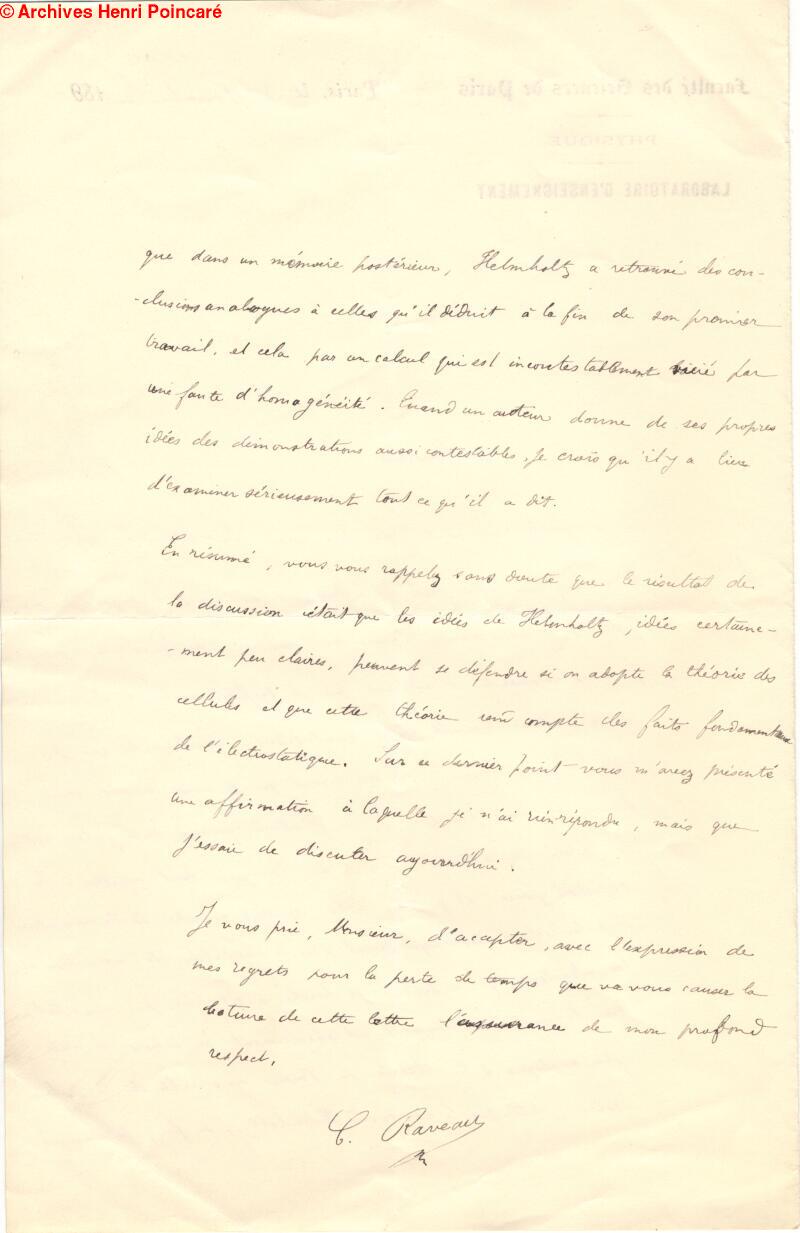 © Archives Henri Poincaré
Faculté des Sciences de Paris
Paris, le 189
PHYSIQUE
LABORATOIRE D'ENSEIGNEMENT
que dans un mémoire postérieur, Helmholtz a retrouvé des con-
-clusions analogues à celles qu'il déduit à la fin de son premier
travail, et cela par un calcul qui est incontestablement vicié par
une faute d'homogénéité. Quand un auteur donne de ses propres
idées des démonstrations aussi contestables, je crois qu'il y a lieu
d'examiner sérieusement tout ce qu'il a dit.
En résumé, vous vous rappelez sans doute que le résultat de
la discussion était que les idées de Helmholtz, idées certaine-
-ment peu claires, peuvent se défendre si on adopte la théorie des
cellules et que cette théorie rend compte des faits fondamentaux
de l'électrostatique. Sur ce dernier point vous m'avez présenté
une affirmation à laquelle je n'ai rien répondu, mais que
j'essaie de discuter aujourd'hui.
Je vous prie, Monsieur, d'accepter, avec l'expression de
mes regrets pour la perte de temps que va vous causer la
lecture de cette lettre l'assurance de mon profond
respect.
C. Raveau